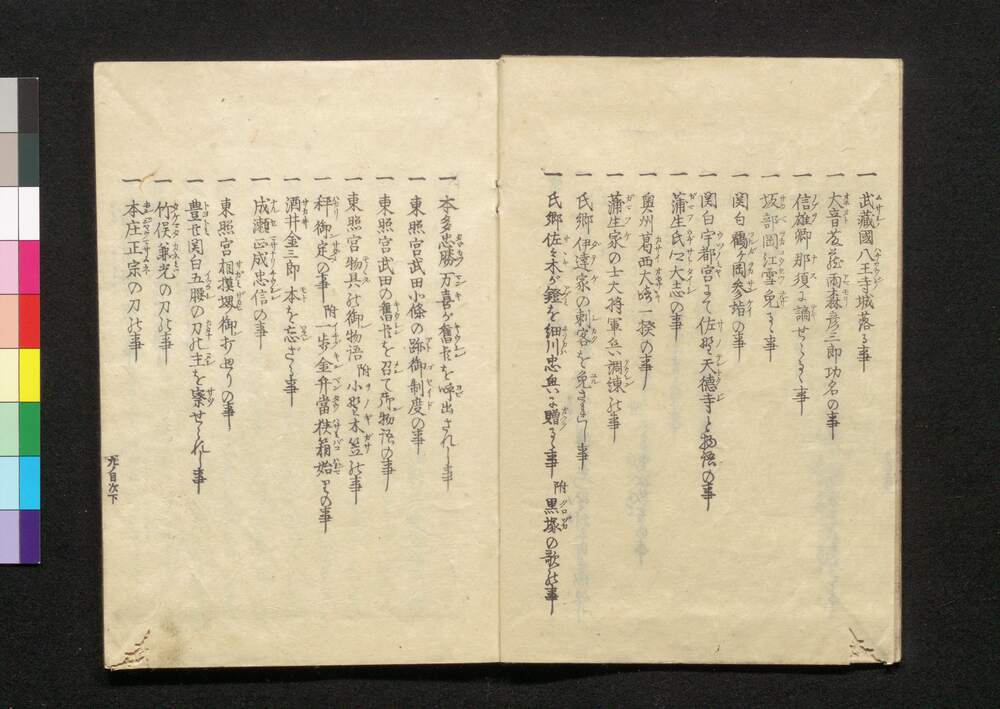 一 武藏國八王寺城落る事
一 大音友蔵雨森彦三郎功名の事
一 信雄卿那須に謫せらるゝ事
一 坂部岡江雪免るゝ事
一 関白鶴ヶ岡参詣の事
一 関白宇都宮にて佐野天徳寺と物語の事
一 蒲生氏郷大志の事
一 奥州葛西大崎一揆の事
一 蒲生家の士大将軍兵調練の事
一 氏郷伊達家の刺客を免さるゝ事
一 氏郷佐々木が鐙を細川忠興に贈るゝ事 附 黒塚の歌の事
一 本多忠勝万喜が舊臣を呼出されし事
一 東照宮武田小條の跡御制度の事
一 東照宮武田の舊臣を召て御物語の事
一 東照宮物具の御物語 附 小野木笠の事
一 秤御定の事 附 一歩金弁當挟箱始りの事
一 酒井金三郎本を忘ざる事
一 成瀬正成忠信の事
一 東照宮相摸堺御打廻りの事
一 豊臣関白五腰の刀の主を察せられし事
一 竹俣兼光の刀の事
一 本庄正宗の刀の事
九ノ目次下